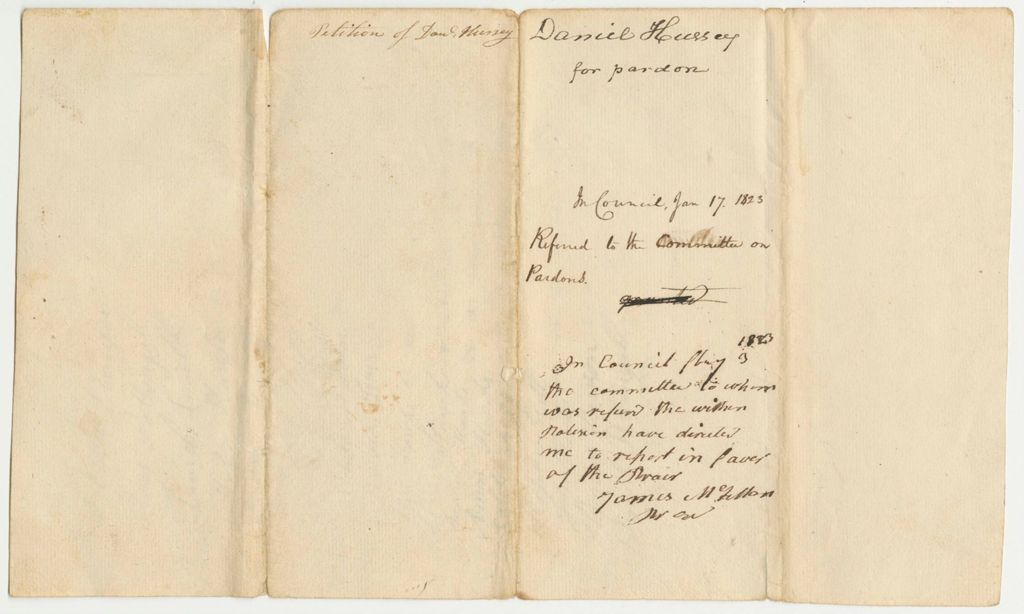 Petition of Danl. Hussey
Daniel Hussey
for pardon
In Council, Jan 17. 1823
Referred to the Committee on
Pardons.
1823
In Council 3
the committee to whom
was referd the within
have directed
me to report in faver
of the
James